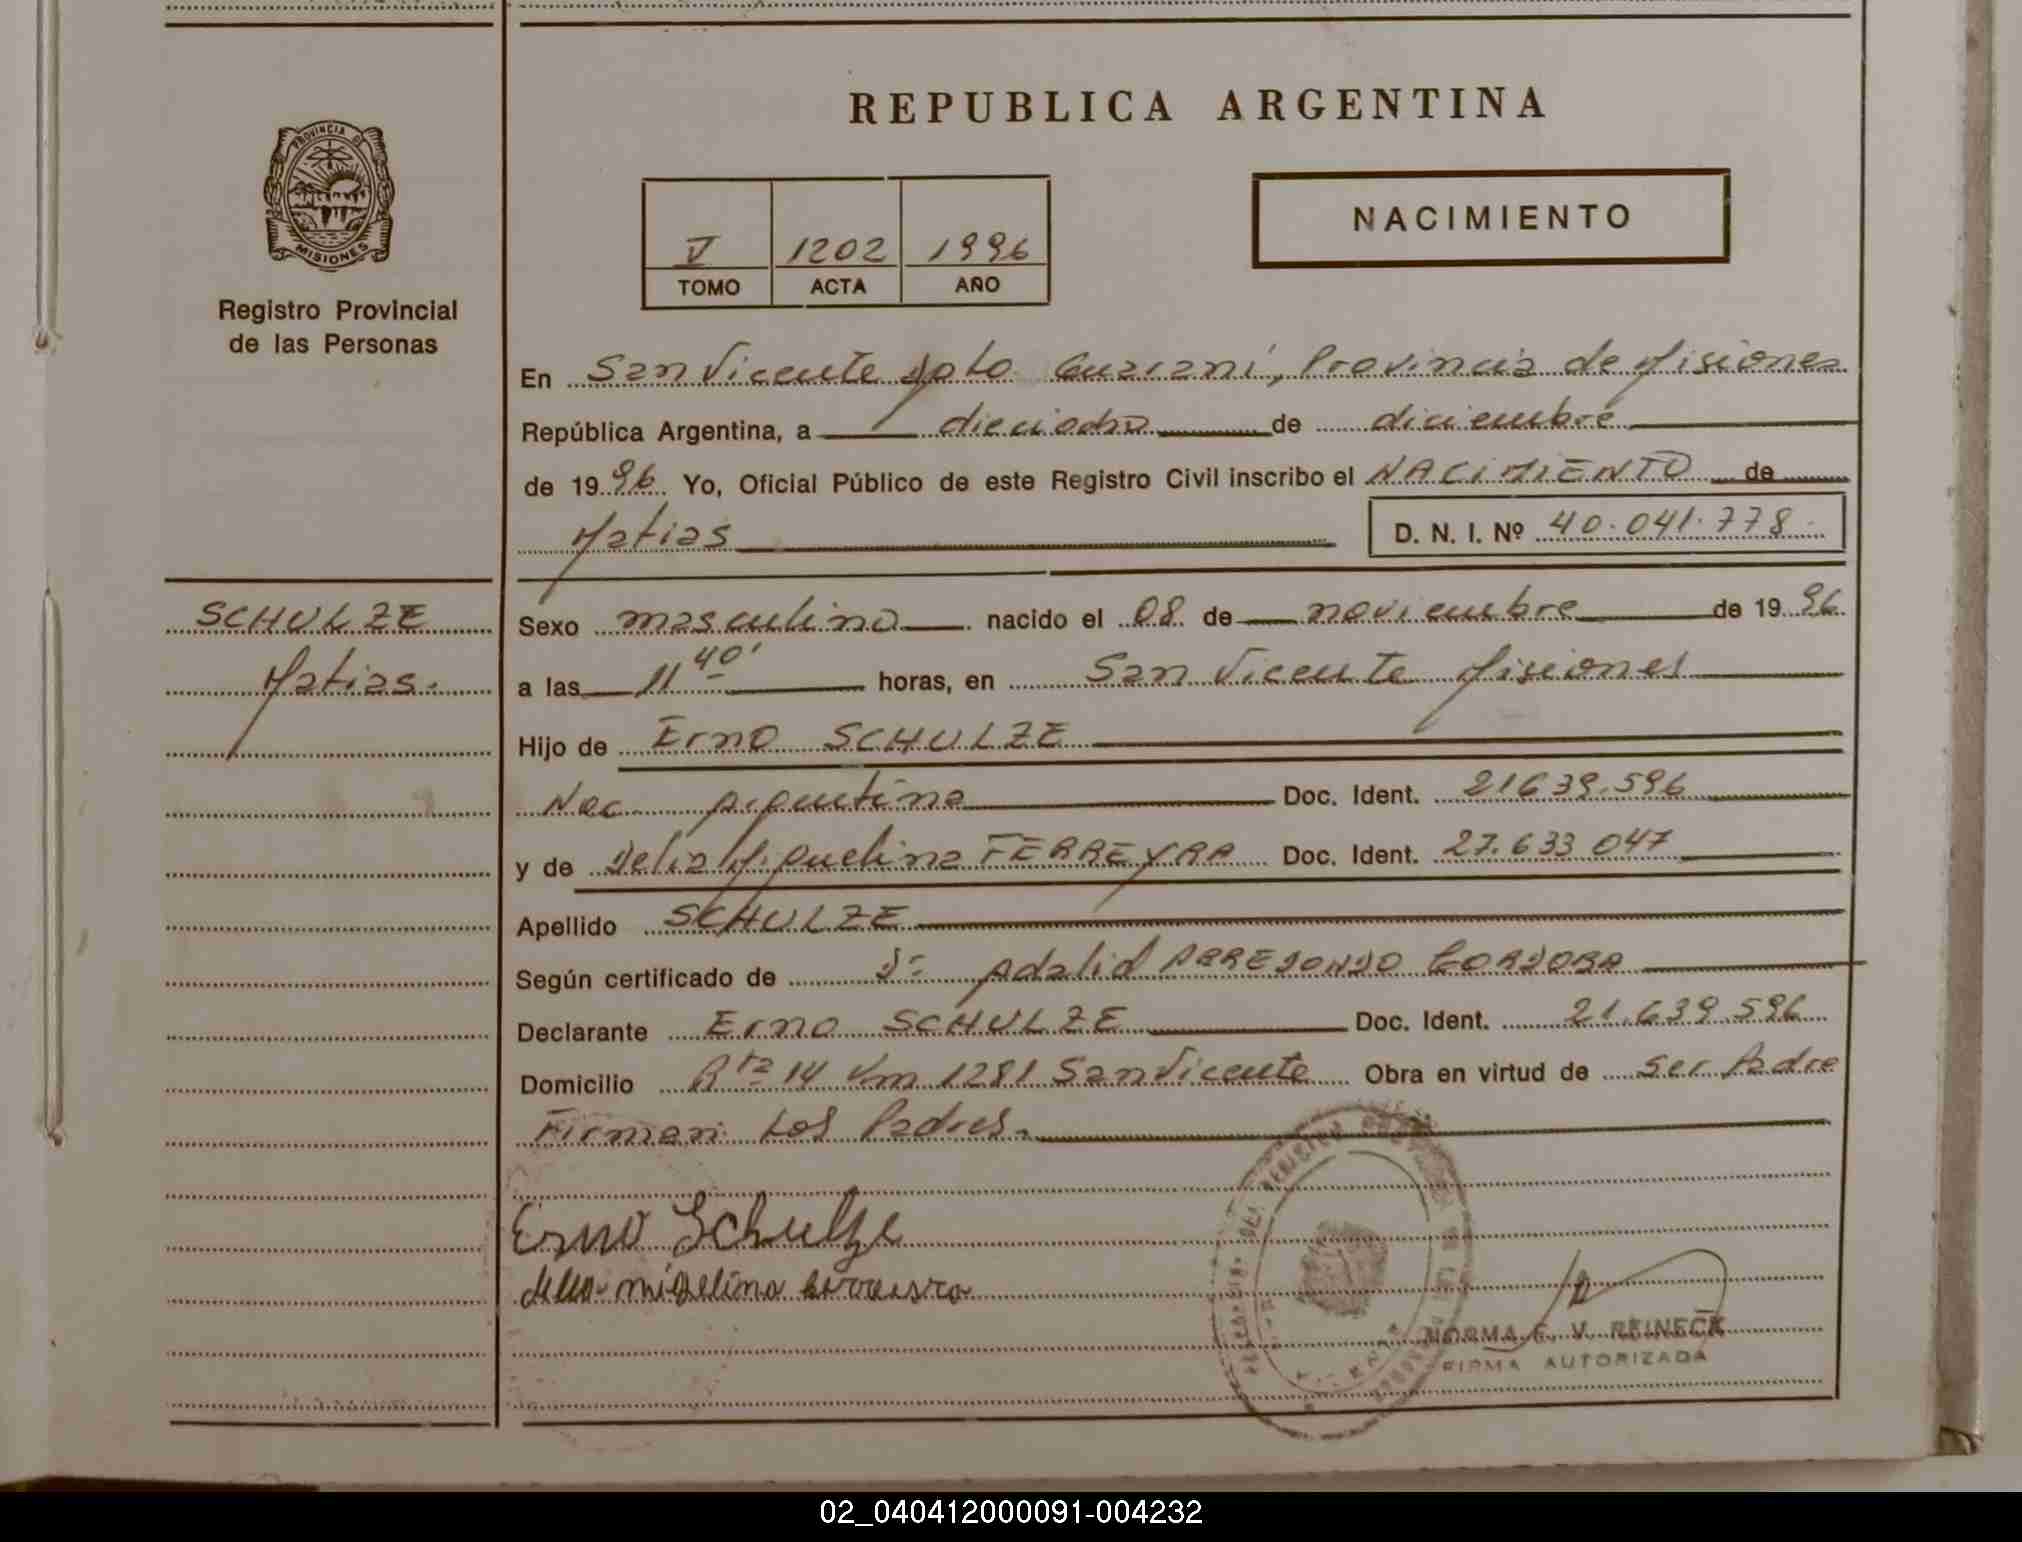 REPUBLICA ARGENTINA
PROVINCIA DE
MISIONES
Registro Provincial
de las Personas
V 1202 1996
TOMO ACTA AÑO
NACIMIENTO
En San Vicente Dpto Guaraní, Provincia de Misiones
República Argentina, a dieciocho de diciembre
de 1996 Yo, Oficial Público de este Registro Civil inscribo el NACIMIENTO de
Matias D. N. I. Nº 40.041.778.
SCHULZE
Matias.
Sexo masculino nacido el 08 de noviembre de 1996
a las 11 40' horas, en San Vicente Misiones
Hijo de Erno SCHULZE
Nac argentina Doc. Ident. 21639.596
y de Delia Miguelina FERREYRA Doc. Ident. 27.633 047
Apellido SCHULZE
Según certificado de Dr Adalid ARREDONDO CORDOBA
Declarante Erno SCHULZE Doc. Ident. 21.639.596
Domicilio Rta 14 Km 1281 San Vicente Obra en virtud de ser Padre
Firman Los Padres.
Erno Schulze
NORMA E. V. REINECK
FIRMA AUTORIZADA
02_040412000091-004232